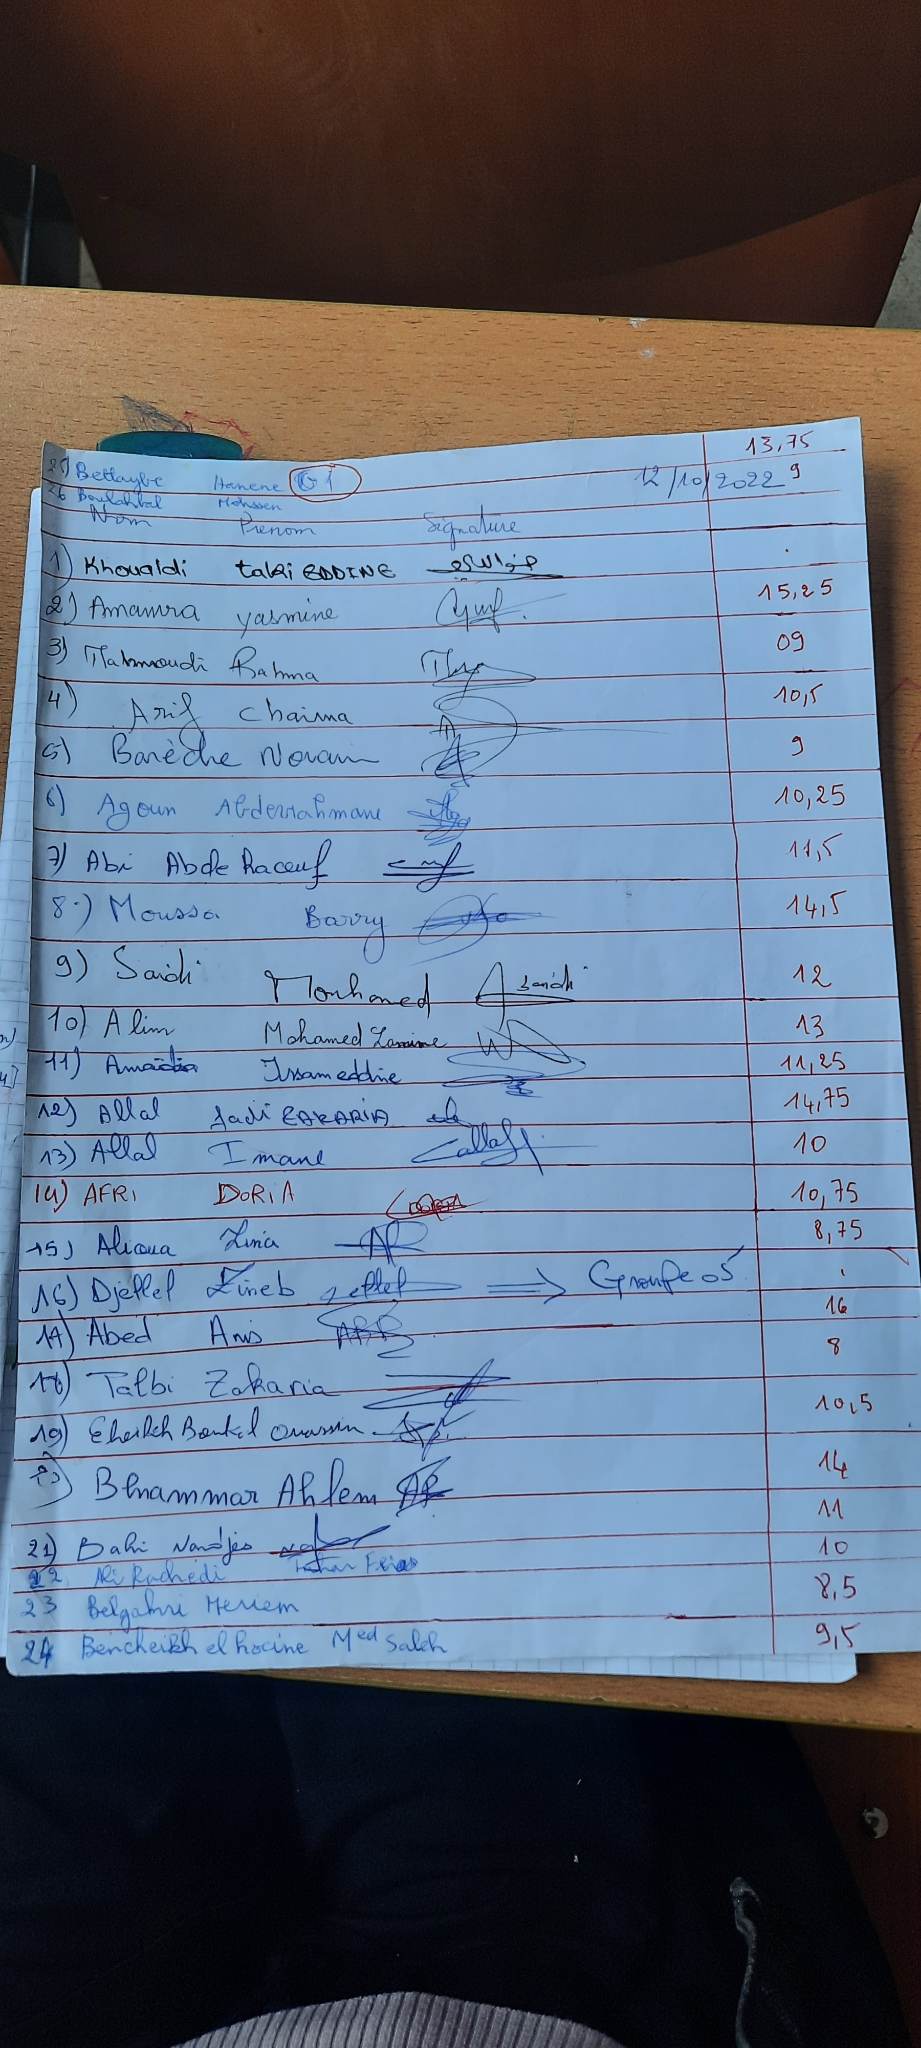 25) Bettaybe Hanene G1 13,75
26 Boulahbal Mohssen 12/10/2022 9
Nom Prenom Signature
1) Khoualdi taki EDDINE
2) Amamra yasmine 15,25
3) Mahmoudi Rahma 09
4) Arif Chaima 10,5
5) Barèche Nourain 9
6) Agoun Abderrahmane 10,25
7) Abi Abde Raouf 11,5
8.) Moussa Barry 14,5
9) Saidi Mouhamed saidi 12
10) Alim Mohamed Lamine 13
11) Issameddine 11,25
12) Allal fadi ZAKARIA 14,75
13) Allal Imane 10
14) AFRI DORIA 10,75
15) Alioua Lina 8,75
16) Djeffel Zineb ⇒ Groupe 05
17) Abed Anis 16
18) Talbi Zakaria 8
19) Cheikh 10,5
Ahlem 14
21) Bahi Nardjes 11
22 Ali Rachedi 10
23 Belgahri Meriem 8,5
24 Bencheikh el hocine Med Saleh 9,5